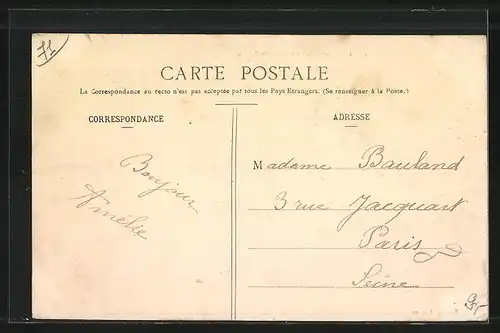 71
CARTE POSTALE
La Correspondance au recto n'est pas acceptée par tous les Pays Etrangers. (Se renseigner à la Poste.)
CORRESPONDANCE
ADRESSE
Bonjour
Amélie
Madame Bauland
3 rue Jacquart
Paris
Seine